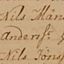 Nils Måns
Anders
Nils Jöns